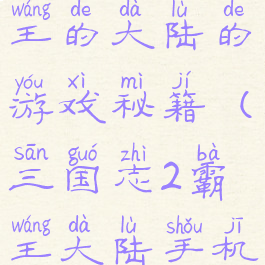 wáng de dà lù de
王的大陆的
yóu xì mì jí
游戏秘籍（
sān guó zhì bà
三国志2霸
wáng dà lù shǒu jī
王大陆手机